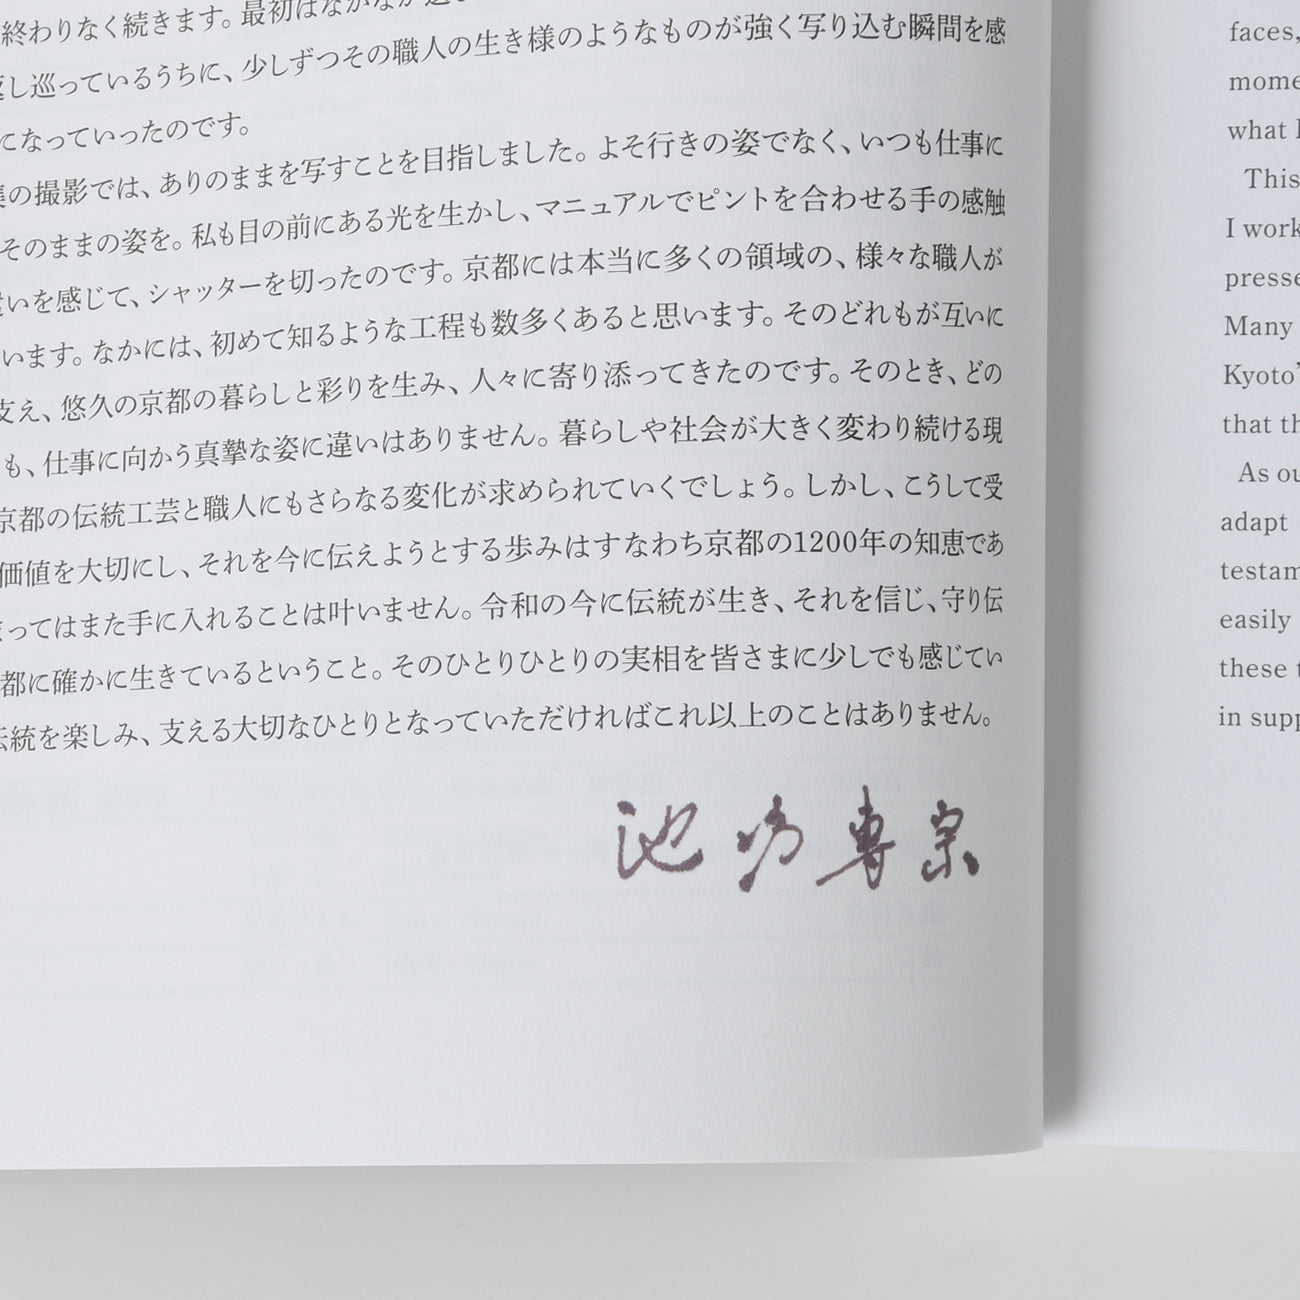 終わりなく続きます。最初はなかなか
し巡っているうちに、少しずつその職人の生き様のようなものが強く写り込む瞬間を感
になっていったのです。
の撮影では、ありのままを写すことを目指しました。よそ行きの姿でなく、いつも仕事に
そのままの姿を。私も目の前にある光を生かし、マニュアルでピントを合わせる手の感触
いを感じて、シャッターを切ったのです。京都には本当に多くの領域の、様々な職人が
います。なかには、初めて知るような工程も数多くあると思います。そのどれもが互いに
支え、悠久の京都の暮らしと彩りを生み、人々に寄り添ってきたのです。そのとき、どの
も、仕事に向かう真摯な姿に違いはありません。暮らしや社会が大きく変わり続ける現
京都の伝統工芸と職人にもさらなる変化が求められていくでしょう。しかし、こうして受
価値を大切にし、それを今に伝えようとする歩みはすなわち京都の1200年の知恵であ
ってはまた手に入れることは叶いません。令和の今に伝統が生き、それを信じ、守り伝
都に確かに生きているということ。そのひとりひとりの実相を皆さまに少しでも感じてい
伝統を楽しみ、支える大切なひとりとなっていただければこれ以上のことはありません。
池坊専宗
faces,
mome
what
This
I work
presse
Many
Kyoto'
that th
As ou
adapt
testam
easily
these t
in supp